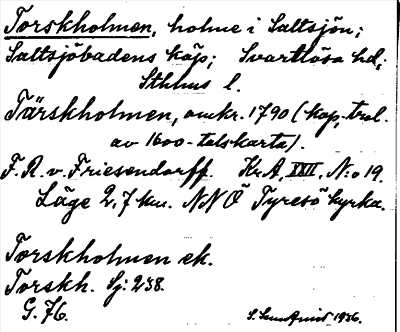 Torskholmen, holme i Saltsjön;
Saltsjöbadens köp; Svartlösa hd;
Sthlms l.
Tärskholmen, omkr. 1790 (kop. trol.
av 1600-talskarta).
F. R. v. Friesendorff. Kr A, XXII, N:o 19.
Läge 2,7 km. NNÖ Tyresö kyrka.
Torskholmen ek.
Torskh. Sj. 238.
G. 76.
S. Landquist 1936.